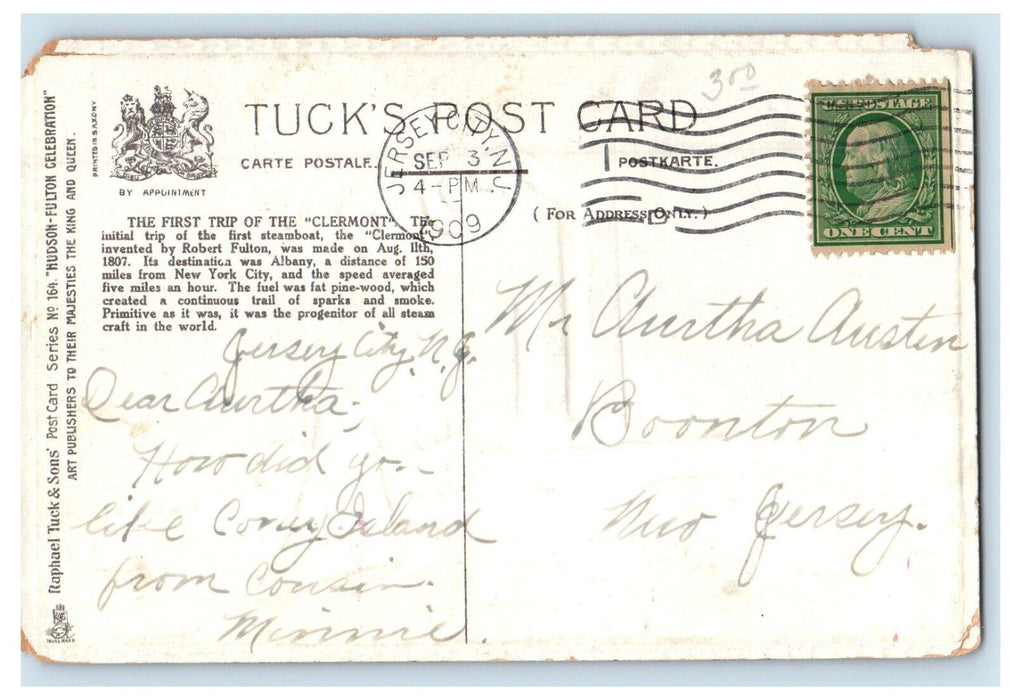 3.00
TUCK'S POST CARD
CARTE POSTALE.
POSTKARTE.
(FOR ADDRESS ONLY.)
BY APPOINTMENT
PRINTED IN SAXONY
JERSEY CITY, N.J.
SEP 3
4-PM
1909
D
U.S. POSTAGE
ONE CENT
THE FIRST TRIP OF THE "CLERMONT". The
initial trip of the first steamboat, the "Clermont",
invented by Robert Fulton, was made on Aug. 11th,
1807. Its destination was Albany, a distance of 150
miles from New York City, and the speed averaged
five miles an hour. The fuel was fat pine-wood, which
created a continuous trail of sparks and smoke.
Primitive as it was, it was the progenitor of all steam
craft in the world.
Raphael Tuck & Sons' Post Card Series No 164. "HUDSON-FULTON CELEBRATION"
ART PUBLISHERS TO THEIR MAJESTIES THE KING AND QUEEN.
Jersey City, N.J.
Dear Aurtha,
How did you
like Coney Island
from Cousin
Minnie.
Mr Aurtha Austen
Boonton
New Jersey.